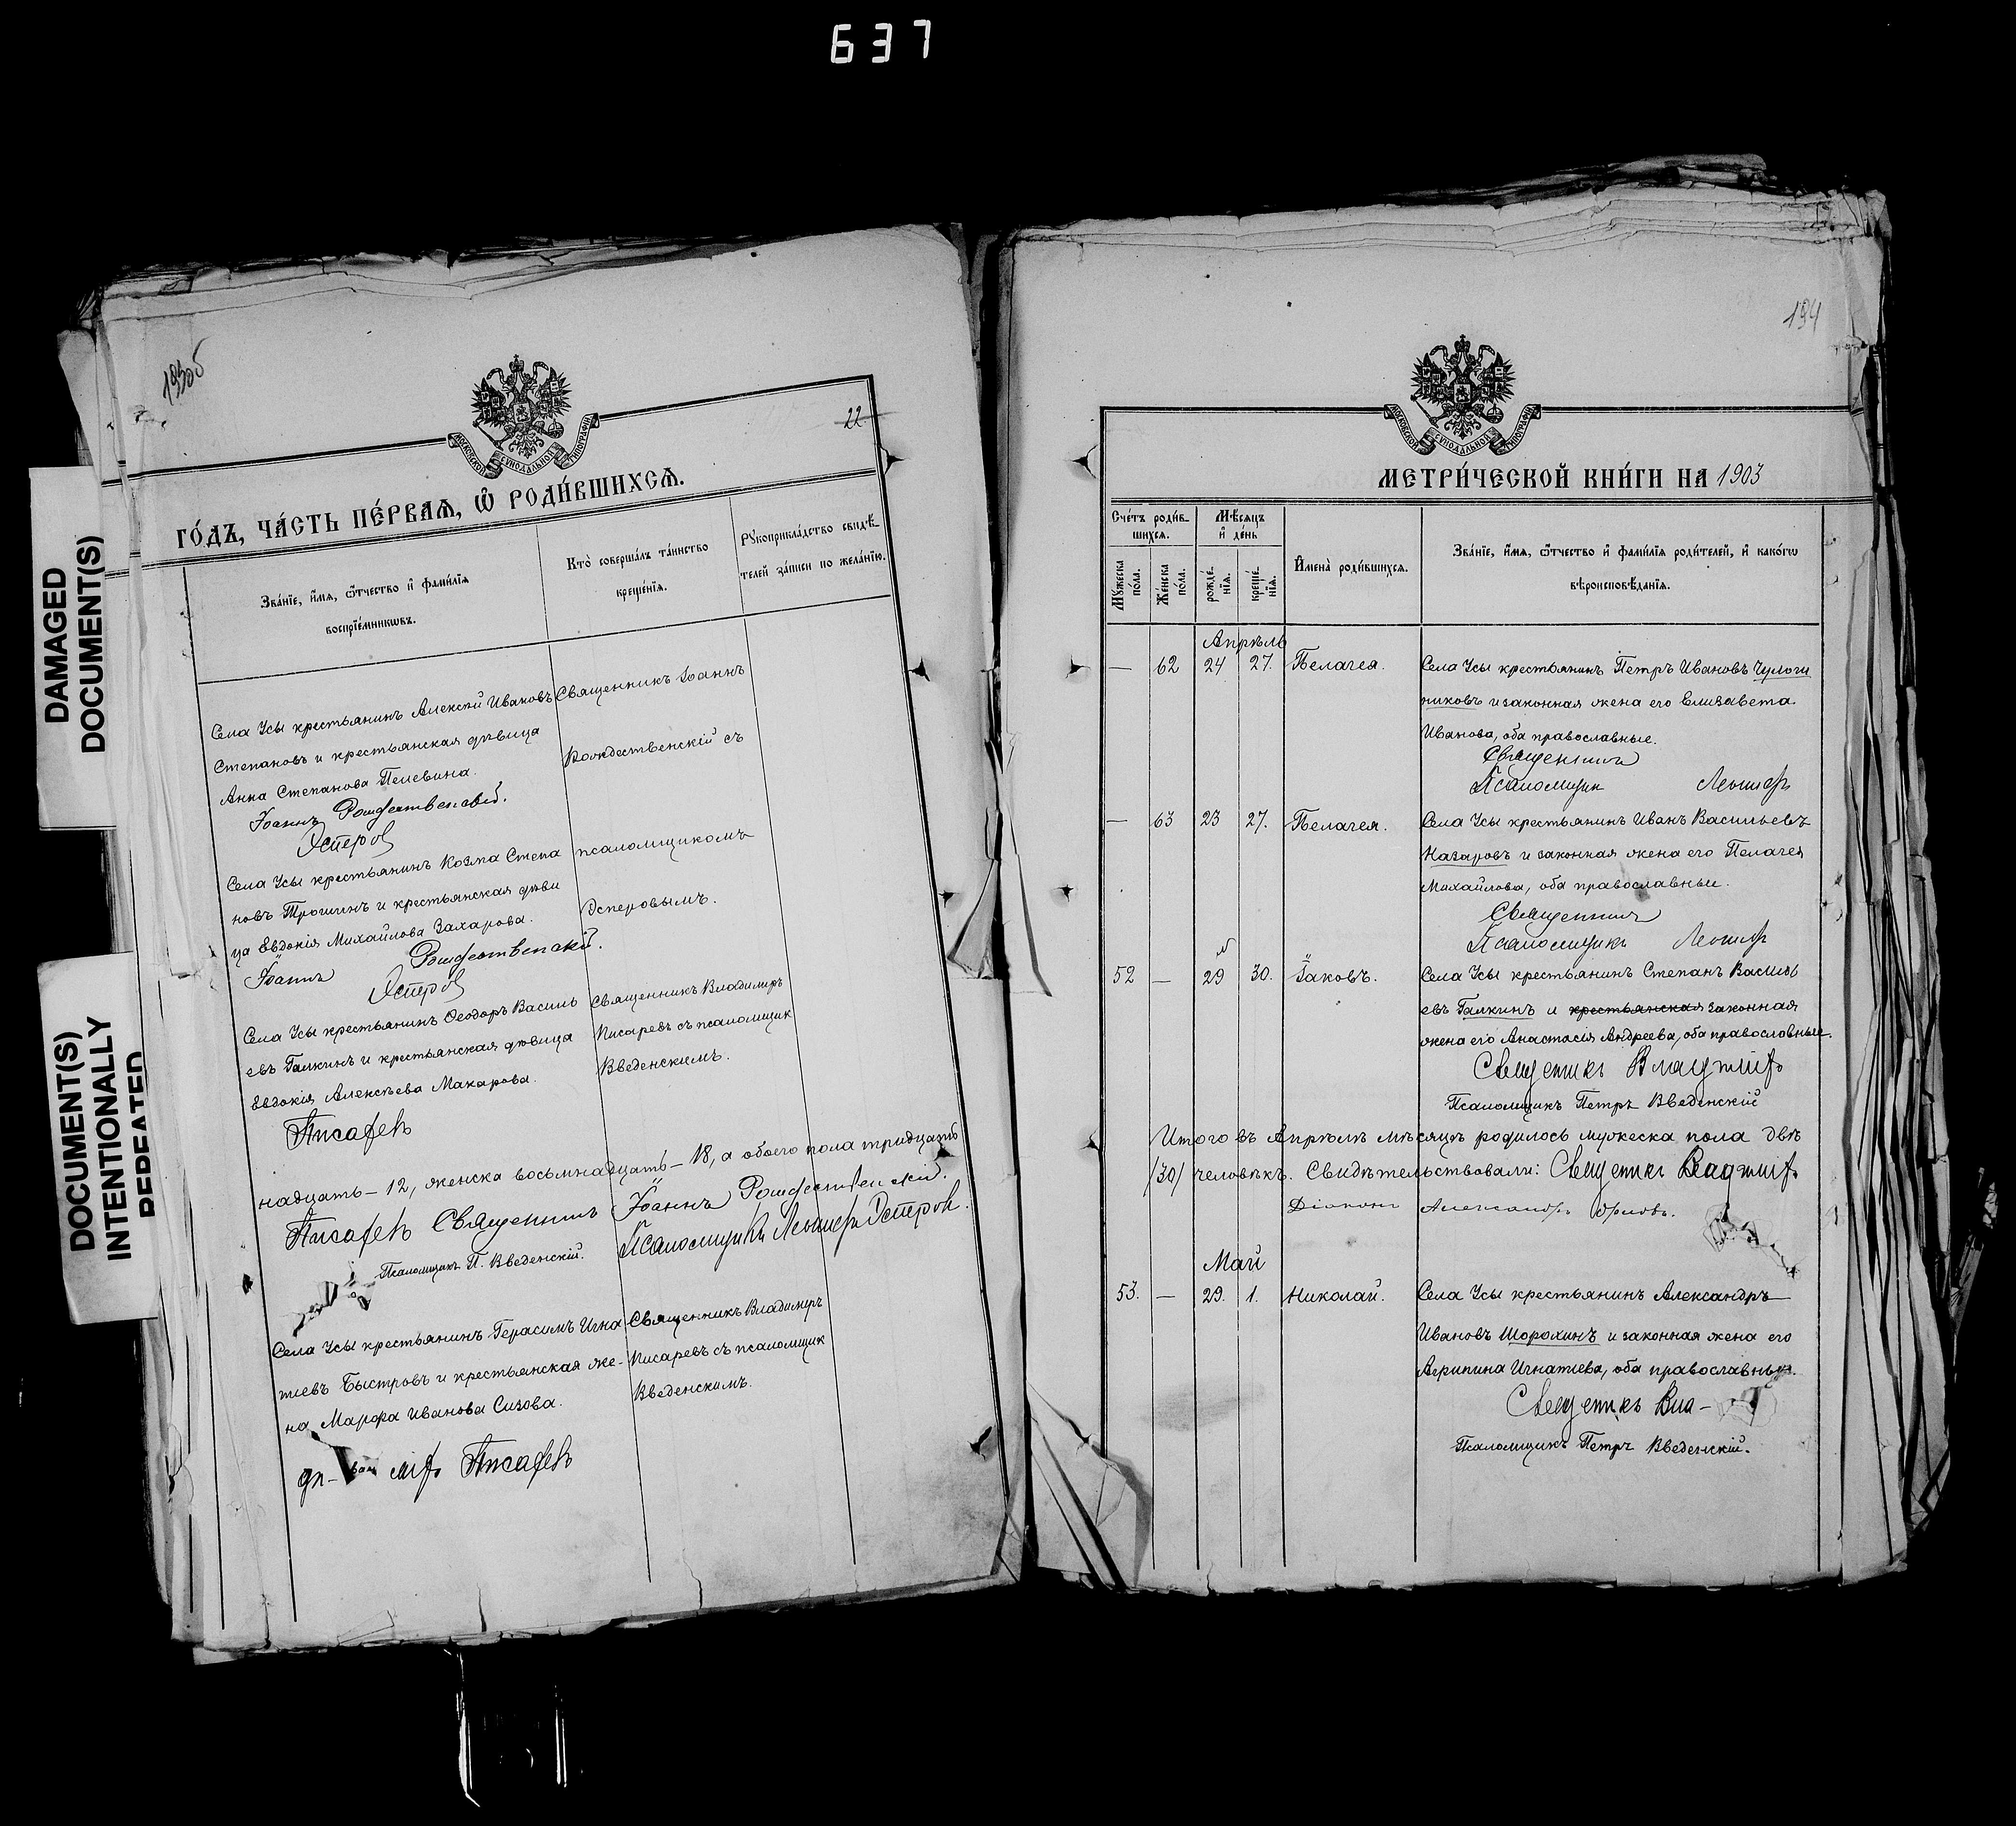 637
DAMAGED
DOCUMENT(S)
DOCUMENT(S)
INTENTIONALLY
REPEATED
193об
22
МОСКОВСКОЙ СУНОДАЛЬНОЙ ТИПОГРАФІИ
ГО́ДЪ, ЧА́СТЬ ПЕ́РВАѦ, Ѽ РОДИ́ВШИХСѦ.
Зва́нїе, и҆́мѧ, ѻ҆́тчество и҆ фами́лїѧ
воспрїе́мникѡвъ.
Кто̀ соверша́лъ та́инство
креще́нїѧ.
Рꙋкоприкла́дство свидѣ́-
телей за́писи по жела́нїю.
Села Усы крестьянинъ Алексѣй Ивановъ
Степановъ и крестьянская дѣвица
Анна Степанова Пелевина.
Священникъ Іоаннъ
Рождественскій съ
Іоаннъ Рождественскій.
Эсперов
Села Усы крестьянинъ Козма Степа
новъ Трошинъ и крестьянская дѣви
ца Евдокія Михайлова Захарова.
псаломщикомъ
Эсперовымъ.
Іоаннъ Рождественскій.
Эсперов
Села Усы крестьянинъ Ѳеодоръ Василь
евъ Галкинъ и крестьянская дѣвица
Евдокія Алексѣева Макарова.
Священникъ Владиміръ
Писаревъ съ псаломщик
Введенскимъ.
Писаревъ
надцать – 12, женска восьмнадцать – 18, а обоего пола тридцать
Писаревъ Священникъ Іоаннъ Рождественскій.
Псаломщикъ П. Введенскій. Псаломщикъ Леонидъ Эсперов.
Села Усы крестьянинъ Герасимъ Игна
тіевъ Быстровъ и крестьянская же-
на Марфа Иванова Сизова.
Священникъ Владиміръ
Писаревъ съ псаломщик
Введенскимъ.
Писаревъ
194
МОСКОВСКОЙ СУНОДАЛЬНОЙ ТИПОГРАФІИ
МЕТРИ́ЧЕСКОЙ КНИ́ГИ НА 1903
Сче́тъ роди́в-
шихсѧ.
Мꙋ́жеска по́ла.
Же́нска по́ла.
Мѣ́сѧцъ
и҆ де́нь
рожде́нїѧ.
креще́нїѧ.
И҆мена̀ роди́вшихсѧ.
Зва́нїе, и҆́мѧ, ѻ҆́тчество и҆ фами́лїѧ роди́телей, и҆ како́гѡ
вѣроисповѣ́данїѧ.
Апрѣль
— 62 24 27. Пелагея. Села Усы крестьянинъ Петръ Ивановъ
никовъ и законная жена его Елизавета
Иванова, оба православные.
Священникъ
Псаломщик Леонидъ
— 63 23 27. Пелагея. Села Усы крестьянинъ Иванъ Васильевъ
Назаровъ и законная жена его Пелагея
Михайлова, оба православные.
Священникъ
Псаломщикъ Леонидъ
52 — 29 30. Іаковъ. Села Усы крестьянинъ Степанъ Василь
евъ Галкинъ и крестьянская законная
жена его Анастасія Андреева, оба православные.
Священникъ Владиміръ
Псаломщикъ Петръ Введенскій
Итого въ Апрѣлѣ мѣсяцѣ родилось мужеска пола двѣ
/30/ человѣкъ. Свидѣтельствовали: Священникъ Владиміръ
Діаконъ Александръ Орловъ.
Май
53. — 29. 1. Николай. Села Усы крестьянинъ Александръ
Ивановъ Шорохинъ и законная жена его
Агрипина Игнатіева, оба православные.
Священникъ Вла-
Псаломщикъ Петръ Введенскій.